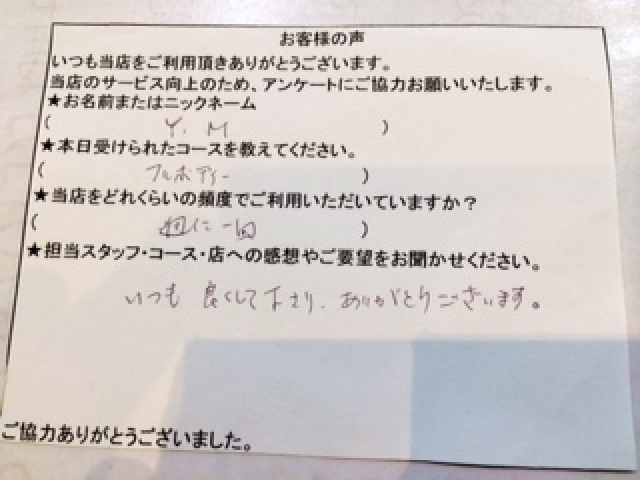 お客様の声
いつも当店をご利用頂きありがとうございます。
当店のサービス向上のため、アンケートにご協力お願いいたします。
★お名前またはニックネーム
( Y. M )
★本日受けられたコースを教えてください。
( フルボディー )
★当店をどれくらいの頻度でご利用いただいていますか?
( に一回 )
★担当スタッフ・コース・店への感想やご要望をお聞かせください。
いつも 良くして下さり、ありがとうございます。
ご協力ありがとうございました。